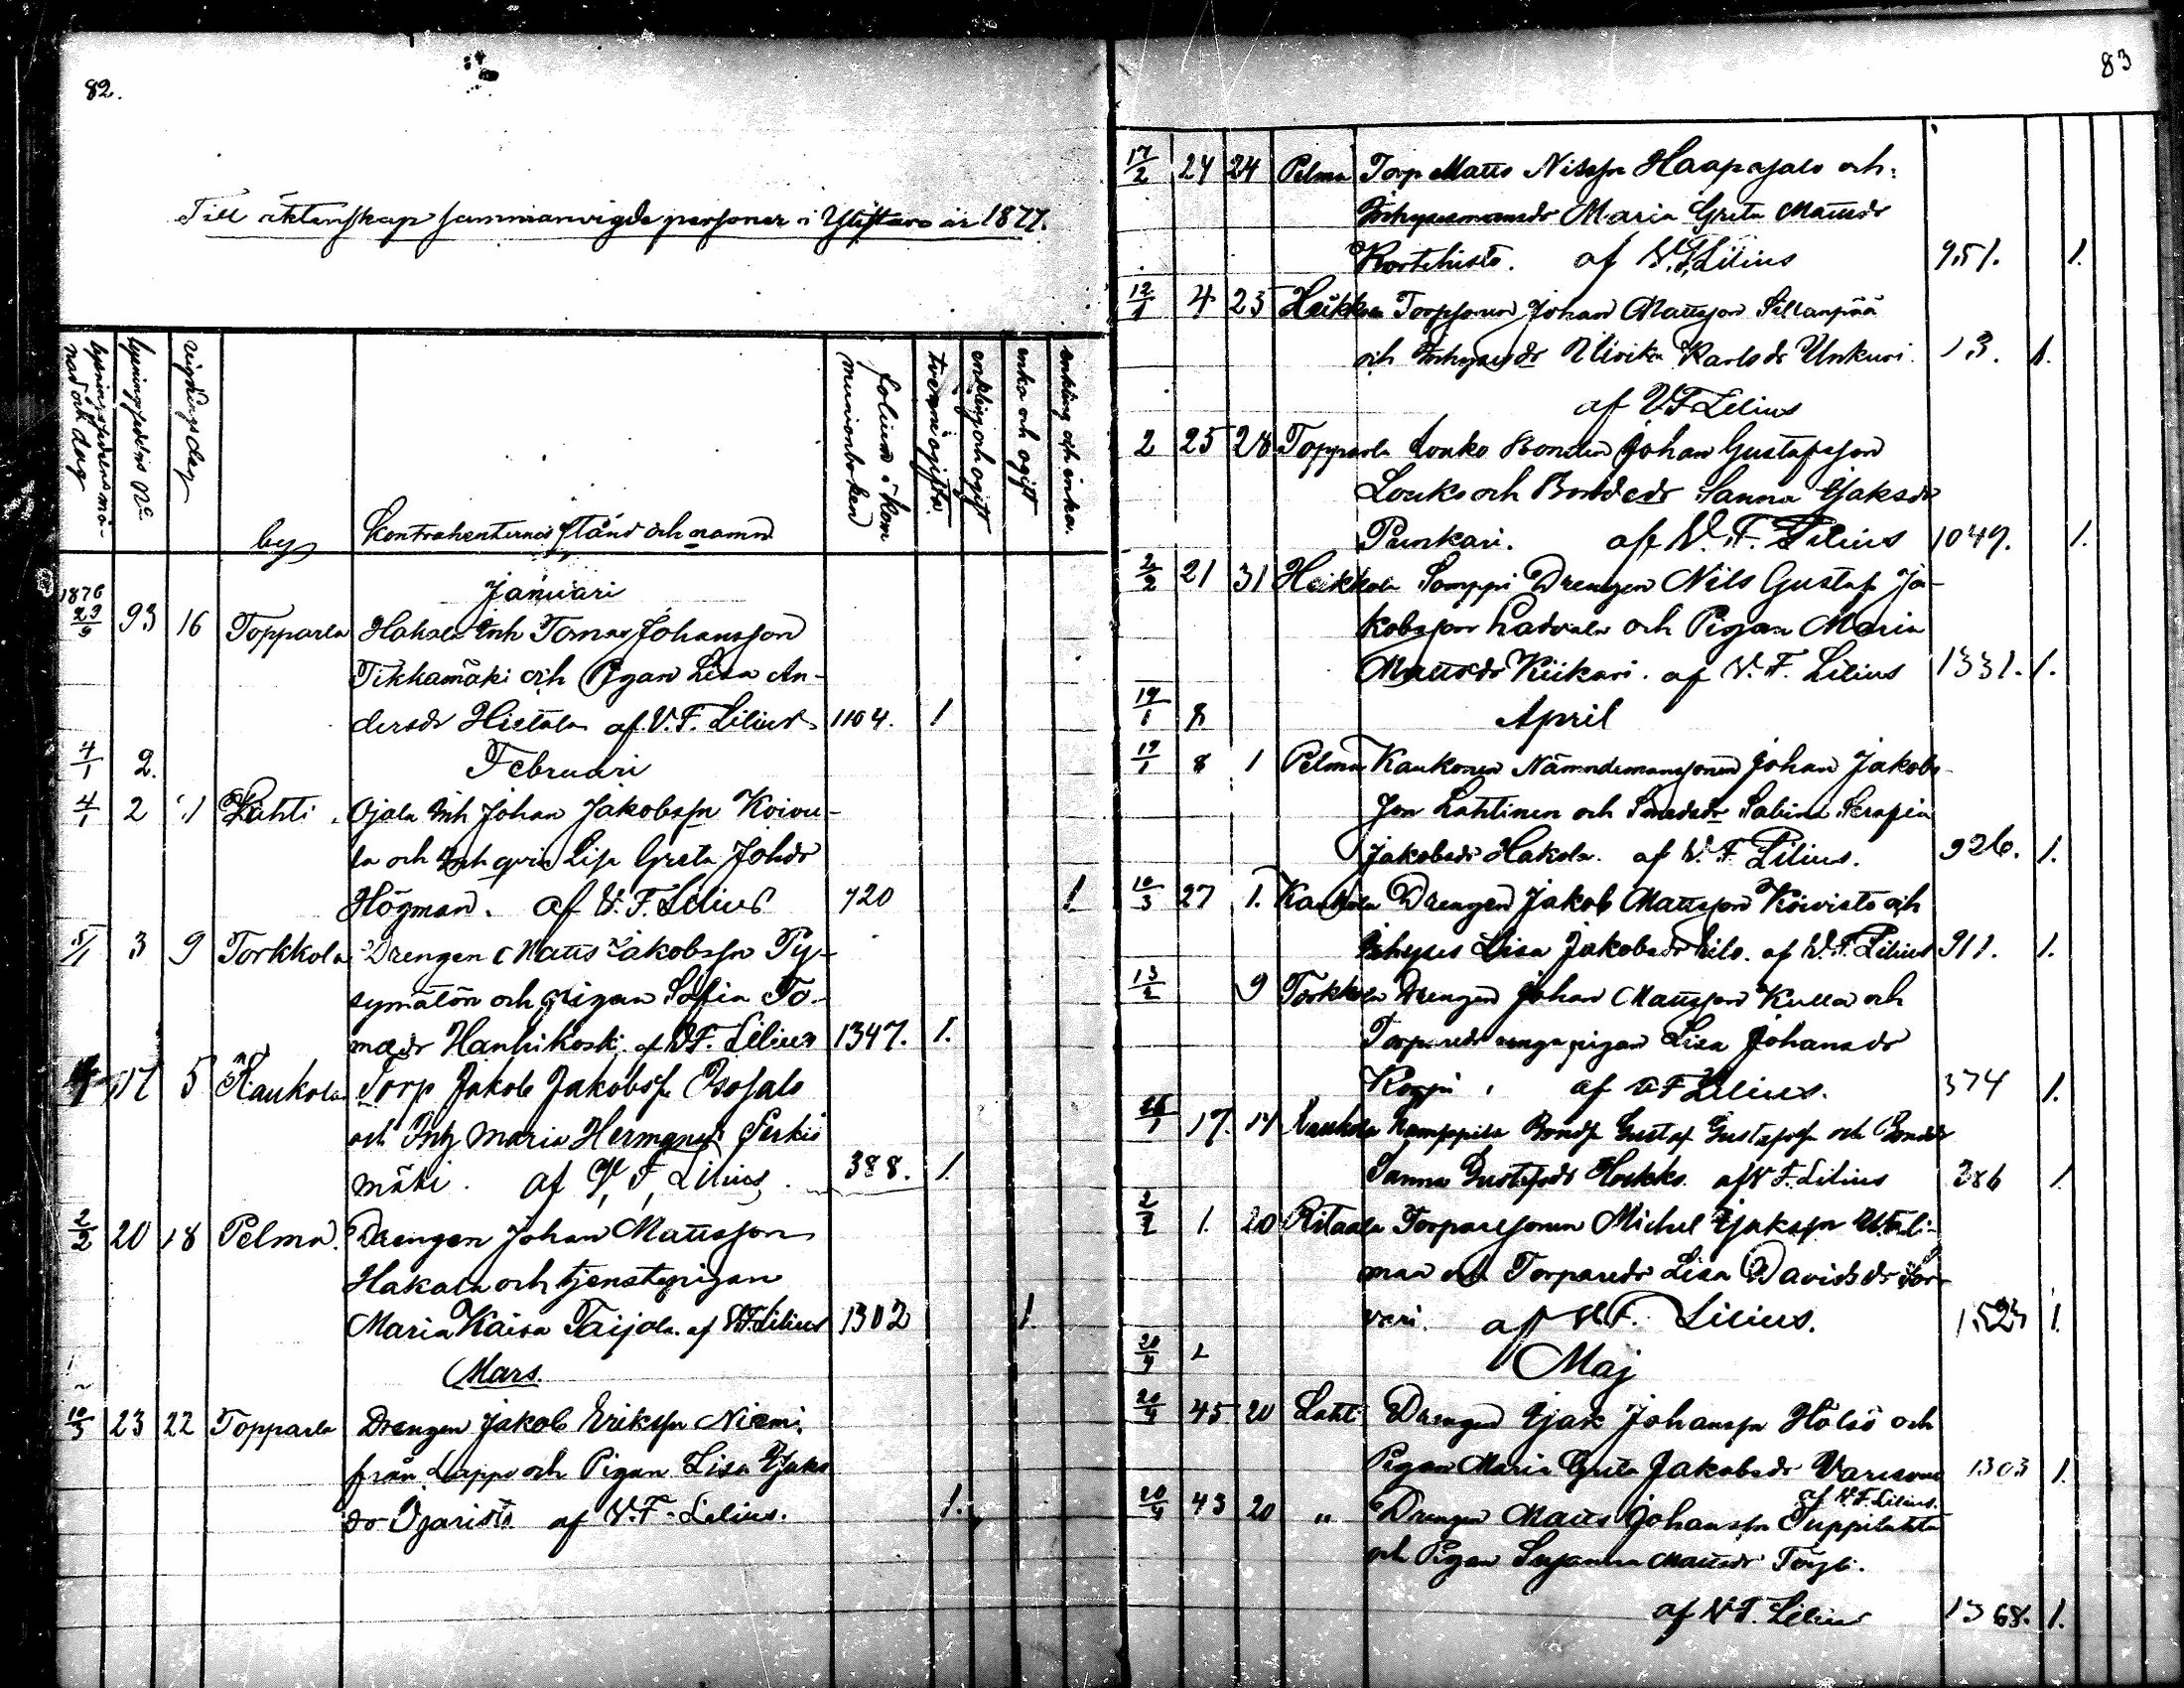 82.
Till äktenskap sammanvigde personer i Ylistaro år 1877.
lysningssedelens månad och dag
lysningssedelns No
vigningsdag
by
Kontrahenternes stånd och namn
folium i kommunionboken
tvenne ogifta
enkling och ogift
enka och ogift
enkling och enka.
Januari
1876 23/9 93 16 Topparla Hakala Inh Tomas Johansson
Tikkamäki och Pigan Lisa An-
dersdr Hietala af V. F. Lilius 1104. 1
4/1 2. Februari
4/1 2 Lahti Ojala Inh Johan Jakobssn Koivu-
la och Inh Lisa Greta Johdr
Högman. af V. F. Lilius 720 1
5/1 3 9 Torkkola Drengen Matts Jakobssn Py-
symätön och pigan Sofia To-
masdr Hanhikoski af V F. Lilius 1347. 1.
17 5 Kaukola Torp Jakob Jakobss Isosalo
och Inh Maria Hermansdr
mäki. af V. F. Lilius. 388. 1.
2/2 20 18 Pelma. Drengen Johan Mattsson
Hakala och tjenstepigan
Maria Kaisa Taijala. af V F Lilius 1302 1.
Mars.
10/3 23 22 Topparla Drengen Jakob Erikssn Niemi
från Lappo och Pigan Lisa Isaks
dr Ojaristo af V. F. Lilius. 1.
83
17/2 24 24 Pelma Torp Matts Nilssn Haapasalo och
Inhysesmansdr Maria Greta Mattsdr
Kortehisto. af V. F. Lilius 951. 1.
12/1 4 23 Heikkola Torpsonen Johan Mattsson Sillanpää
och Inhysesdr Ulrika Karlsdr Unkuri. 13. 1.
af V F Lilius
2 25 28 Topparla Louko Bonden Johan Gustafsson
Louko och Bondedr Sanna Isaksdr
Punkari. af V. F. Lilius 1049. 1.
2/2 21 31 Heikkola Somppi Drengen Nils Gustaf Ja-
kobsson Ladvala och Pigan Maria
Mattsdr Kiikari. af V. F. Lilius 1331. 1.
19/1 8 April
19/1 8 1 Pelma Kaukonen Nämndemanssonen Johan Jakobs-
son Lahtinen och Smedsdr Sabina Serafia
Jakobsdr Hakola. af V. F. Lilius. 926. 1.
10/3 27 1. Kaukola Drengen Jakob Mattsson Koivisto och
Inhyses Lisa Jakobsdr af V. F. Lilius 911. 1.
13/2 9 Torkkola Drengen Johan Mattsson Kulla och
pigan Lisa Johansdr
af V F Lilius. 374 1.
17. 14 Kaukola Kamppila Bonds Gustaf Gustafssn och Bondedr
Sanna Gustafsdr af V F. Lilius 386 1.
2/2 1. 20 Ritaala Torparesonen Michel Isakssn Untali-
man och Torparedr Lisa Davidsdr Sor-
vari. af V. F. Lilius. 1523 1.
20/4 Maj
20/4 45 20 Lahti Drengen Isak Johanssn Hölsö och
Pigan Maria Greta Jakobsdr 1303 1.
af V. F. Lilius.
20/4 43 20 " Drengen Matts Johanssn Suppilahta
och Pigan Susanna Mattsdr
af V. F. Lilius 1368. 1.